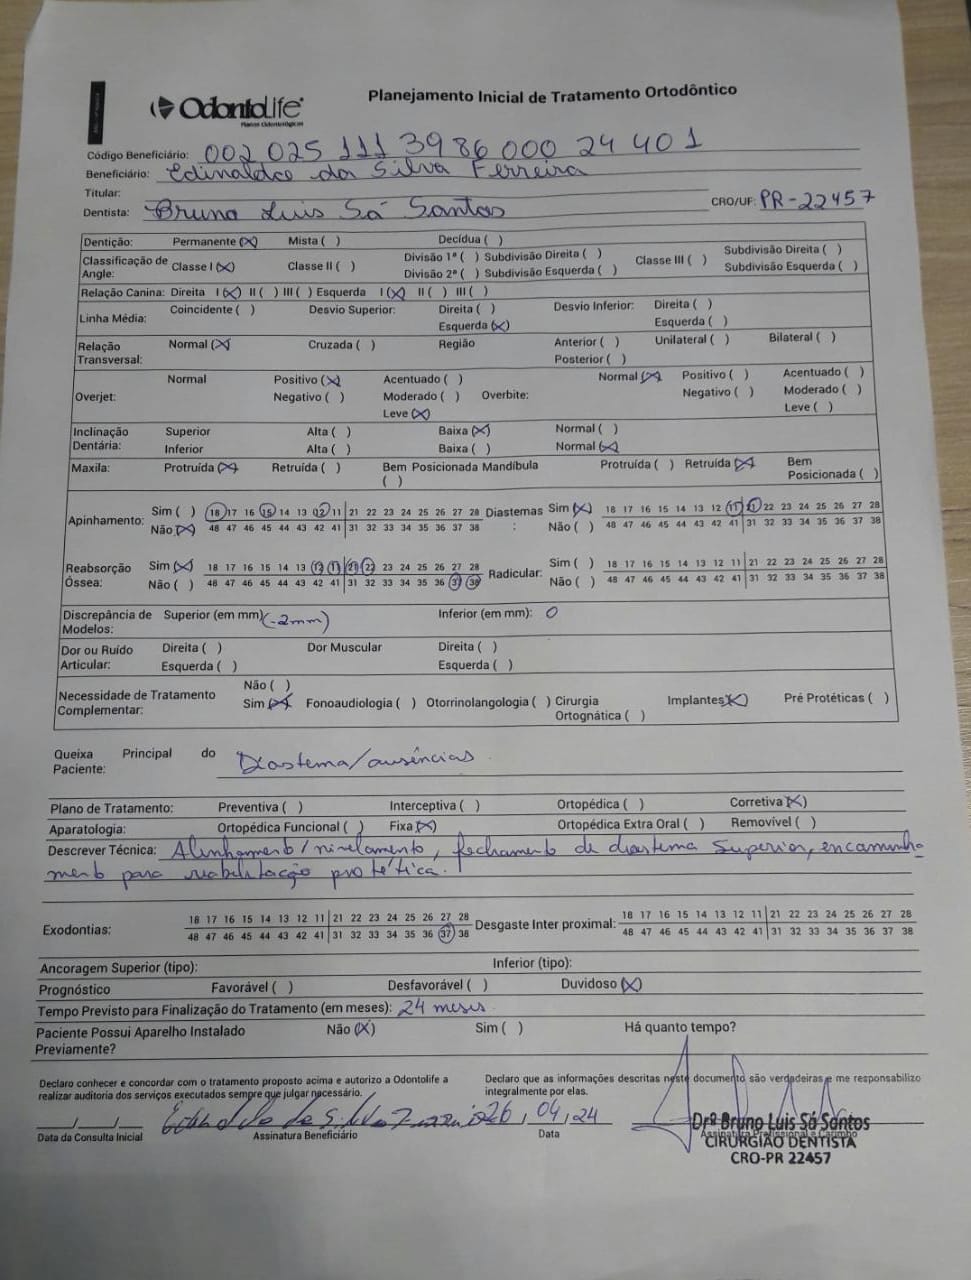 OdontoLife
Planos Odontológicos
Planejamento Inicial de Tratamento Ortodôntico
Código Beneficiário: 002 025 111 3986 000 24 401
Beneficiário: Edinaldo da Silva Ferreira
Titular:
Dentista: Bruno Luis Sá Santos CRO/UF: PR-22457
Dentição: Permanente (X) Mista ( ) Decídua ( )
Classificação de Angle: Classe I (X) Classe II ( ) Divisão 1ª ( ) Subdivisão Direita ( ) Classe III ( ) Subdivisão Direita ( )
Divisão 2ª ( ) Subdivisão Esquerda ( ) Subdivisão Esquerda ( )
Relação Canina: Direita I (X) II ( ) III ( ) Esquerda I (X) II ( ) III ( )
Linha Média: Coincidente ( ) Desvio Superior: Direita ( ) Desvio Inferior: Direita ( )
Esquerda (X) Esquerda ( )
Relação Transversal: Normal (X) Cruzada ( ) Região Anterior ( ) Unilateral ( ) Bilateral ( )
Posterior ( )
Overjet: Normal Positivo (X) Acentuado ( ) Overbite: Normal (X) Positivo ( ) Acentuado ( )
Negativo ( ) Moderado ( ) Negativo ( ) Moderado ( )
Leve (X) Leve ( )
Inclinação Dentária: Superior Alta ( ) Baixa (X) Normal ( )
Inferior Alta ( ) Baixa ( ) Normal (X)
Maxila: Protruída (X) Retruída ( ) Bem Posicionada ( ) Mandíbula Protruída ( ) Retruída (X) Bem Posicionada ( )
Apinhamento: Sim ( ) 18 17 16 15 14 13 12 11 21 22 23 24 25 26 27 28 Diastemas : Sim (X) 18 17 16 15 14 13 12 11 21 22 23 24 25 26 27 28
Não (X) 48 47 46 45 44 43 42 41 31 32 33 34 35 36 37 38 Não ( ) 48 47 46 45 44 43 42 41 31 32 33 34 35 36 37 38
Reabsorção Óssea: Sim (X) 18 17 16 15 14 13 12 11 21 22 23 24 25 26 27 28 Radicular: Sim ( ) 18 17 16 15 14 13 12 11 21 22 23 24 25 26 27 28
Não ( ) 48 47 46 45 44 43 42 41 31 32 33 34 35 36 37 38 Não ( ) 48 47 46 45 44 43 42 41 31 32 33 34 35 36 37 38
Discrepância de Modelos: Superior (em mm) (-2mm) Inferior (em mm): 0
Dor ou Ruído Articular: Direita ( ) Dor Muscular Direita ( )
Esquerda ( ) Esquerda ( )
Necessidade de Tratamento Complementar: Não ( )
Sim (X) Fonoaudiologia ( ) Otorrinolangologia ( ) Cirurgia Ortognática ( ) Implantes (X) Pré Protéticas ( )
Queixa Principal do Paciente: Diastema/ausências
Plano de Tratamento: Preventiva ( ) Interceptiva ( ) Ortopédica ( ) Corretiva (X)
Aparatologia: Ortopédica Funcional ( ) Fixa (X) Ortopédica Extra Oral ( ) Removível ( )
Descrever Técnica: Alinhamento/nivelamento, fechamento de diastema superior, encaminha
mento para reabilitação protética.
Exodontias: 18 17 16 15 14 13 12 11 21 22 23 24 25 26 27 28 Desgaste Inter proximal: 18 17 16 15 14 13 12 11 21 22 23 24 25 26 27 28
48 47 46 45 44 43 42 41 31 32 33 34 35 36 37 38 48 47 46 45 44 43 42 41 31 32 33 34 35 36 37 38
Ancoragem Superior (tipo): Inferior (tipo):
Prognóstico Favorável ( ) Desfavorável ( ) Duvidoso (X)
Tempo Previsto para Finalização do Tratamento (em meses): 24 meses.
Paciente Possui Aparelho Instalado Previamente? Não (X) Sim ( ) Há quanto tempo?
Declaro conhecer e concordar com o tratamento proposto acima e autorizo a Odontolife a
realizar auditoria dos serviços executados sempre que julgar necessário.
Declaro que as informações descritas neste documento são verdadeiras e me responsabilizo
integralmente por elas.
Edinaldo da Silva Ferreira 26/04/24
Data da Consulta Inicial Assinatura Beneficiário Data Assinatura Profissional e Carimbo
Drº Bruno Luis Sá Santos
CIRURGIÃO DENTISTA
CRO-PR 22457